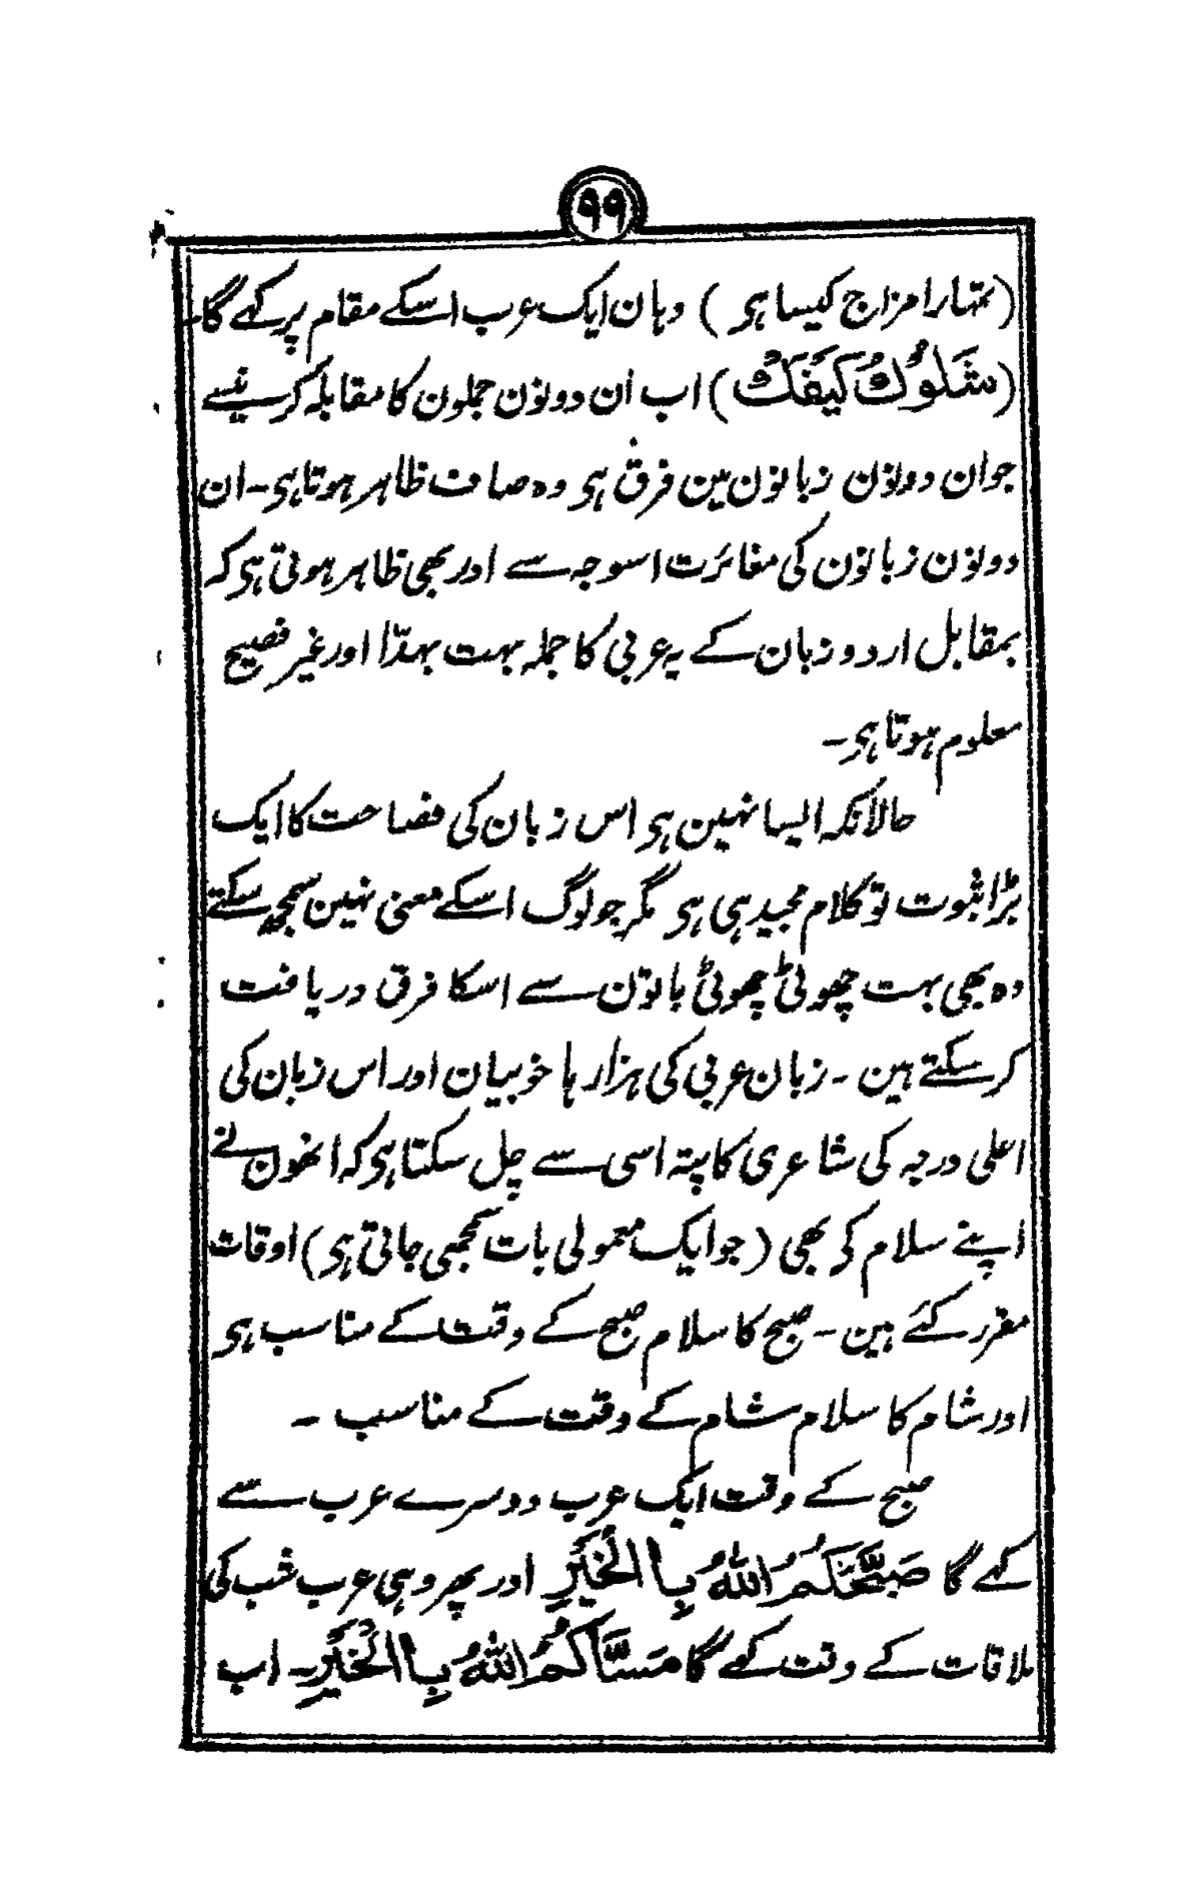 ۹۹
(تمہارا مزاج کیسا ہی) وہان ایک عرب اسکے مقام پر کہے گا
(شَلُوُكْ كَيْفَكْ) اب اُن دونون جملون کا مقابلہ کرنیسے
جوان دونون زبانون مین فرق ہی وہ صاف ظاہر ہوتا ہی۔ ان
دونون زبانون کی مغائرت اسوجہ سے اور بھی ظاہر ہوتی ہی کہ
بمقابل اردو زبان کے یہ عربی کا جملہ بہت بہدّا اور غیر فصیح
معلوم ہوتا ہی۔
حالانکہ ایسا نہین ہی اس زبان کی فصاحت کا ایک
بڑا ثبوت تو کلام مجید ہی ہی مگر جو لوگ اسکے معنی نہین سمجھ سکتے
وہ بھی بہت چھوٹی چھوٹی باتون سے اسکا فرق دریافت
کر سکتے ہین۔ زبان عربی کی ہزار ہا خوبیان اور اس زبان کی
اعلی درجہ کی شاعری کا پتہ اسی سے چل سکتا ہی کہ انھون نے
اپنے سلام کی بھی (جو ایک معمولی بات سمجھی جاتی ہی) اوقات
مقرر کئے ہین۔ صبح کا سلام صبح کے وقت کے مناسب ہی
اور شام کا سلام شام کے وقت کے مناسب۔
صبح کے وقت ایک عرب دوسرے عرب سے
کہے گا صَبَّحَكُمُ اللهُ بِالْخَيْرِ اور پھر وہی عرب شب کی
ملاقات کے وقت کہے گا مَسَّاكُمُ اللهُ بِالْخَيْرِ۔ اب